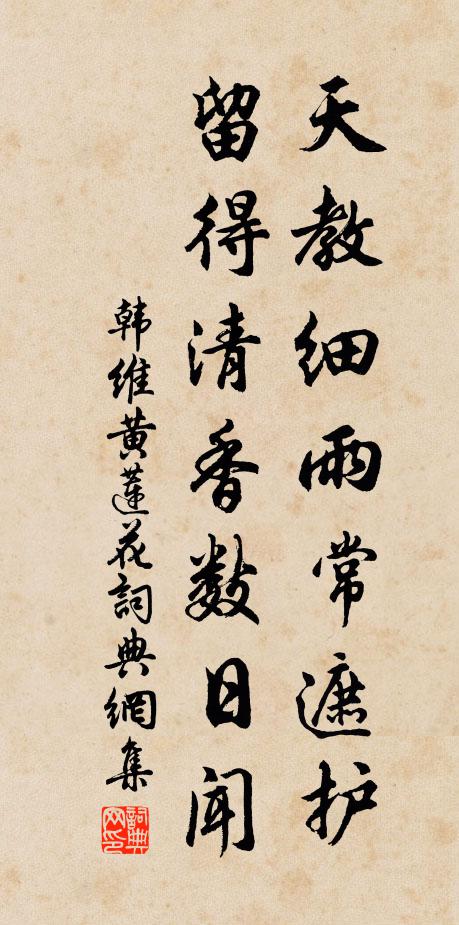 天教细雨常遮护
留得清香数日闻
韩维黄莲花詞典網集
詞典网印